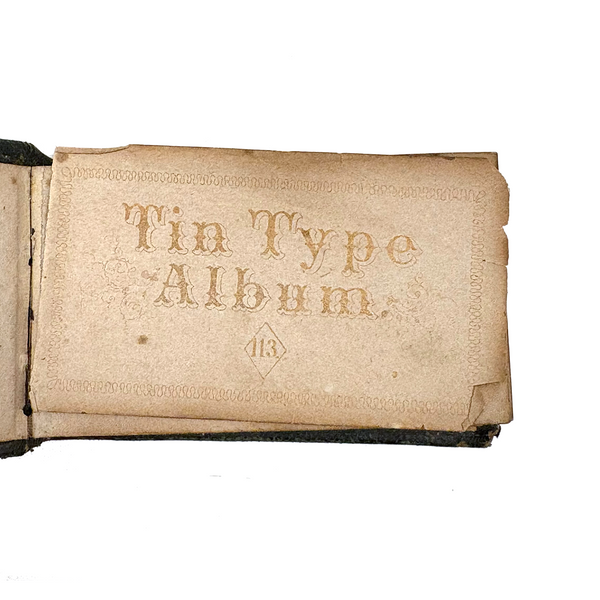 Tin Type
Album.
113